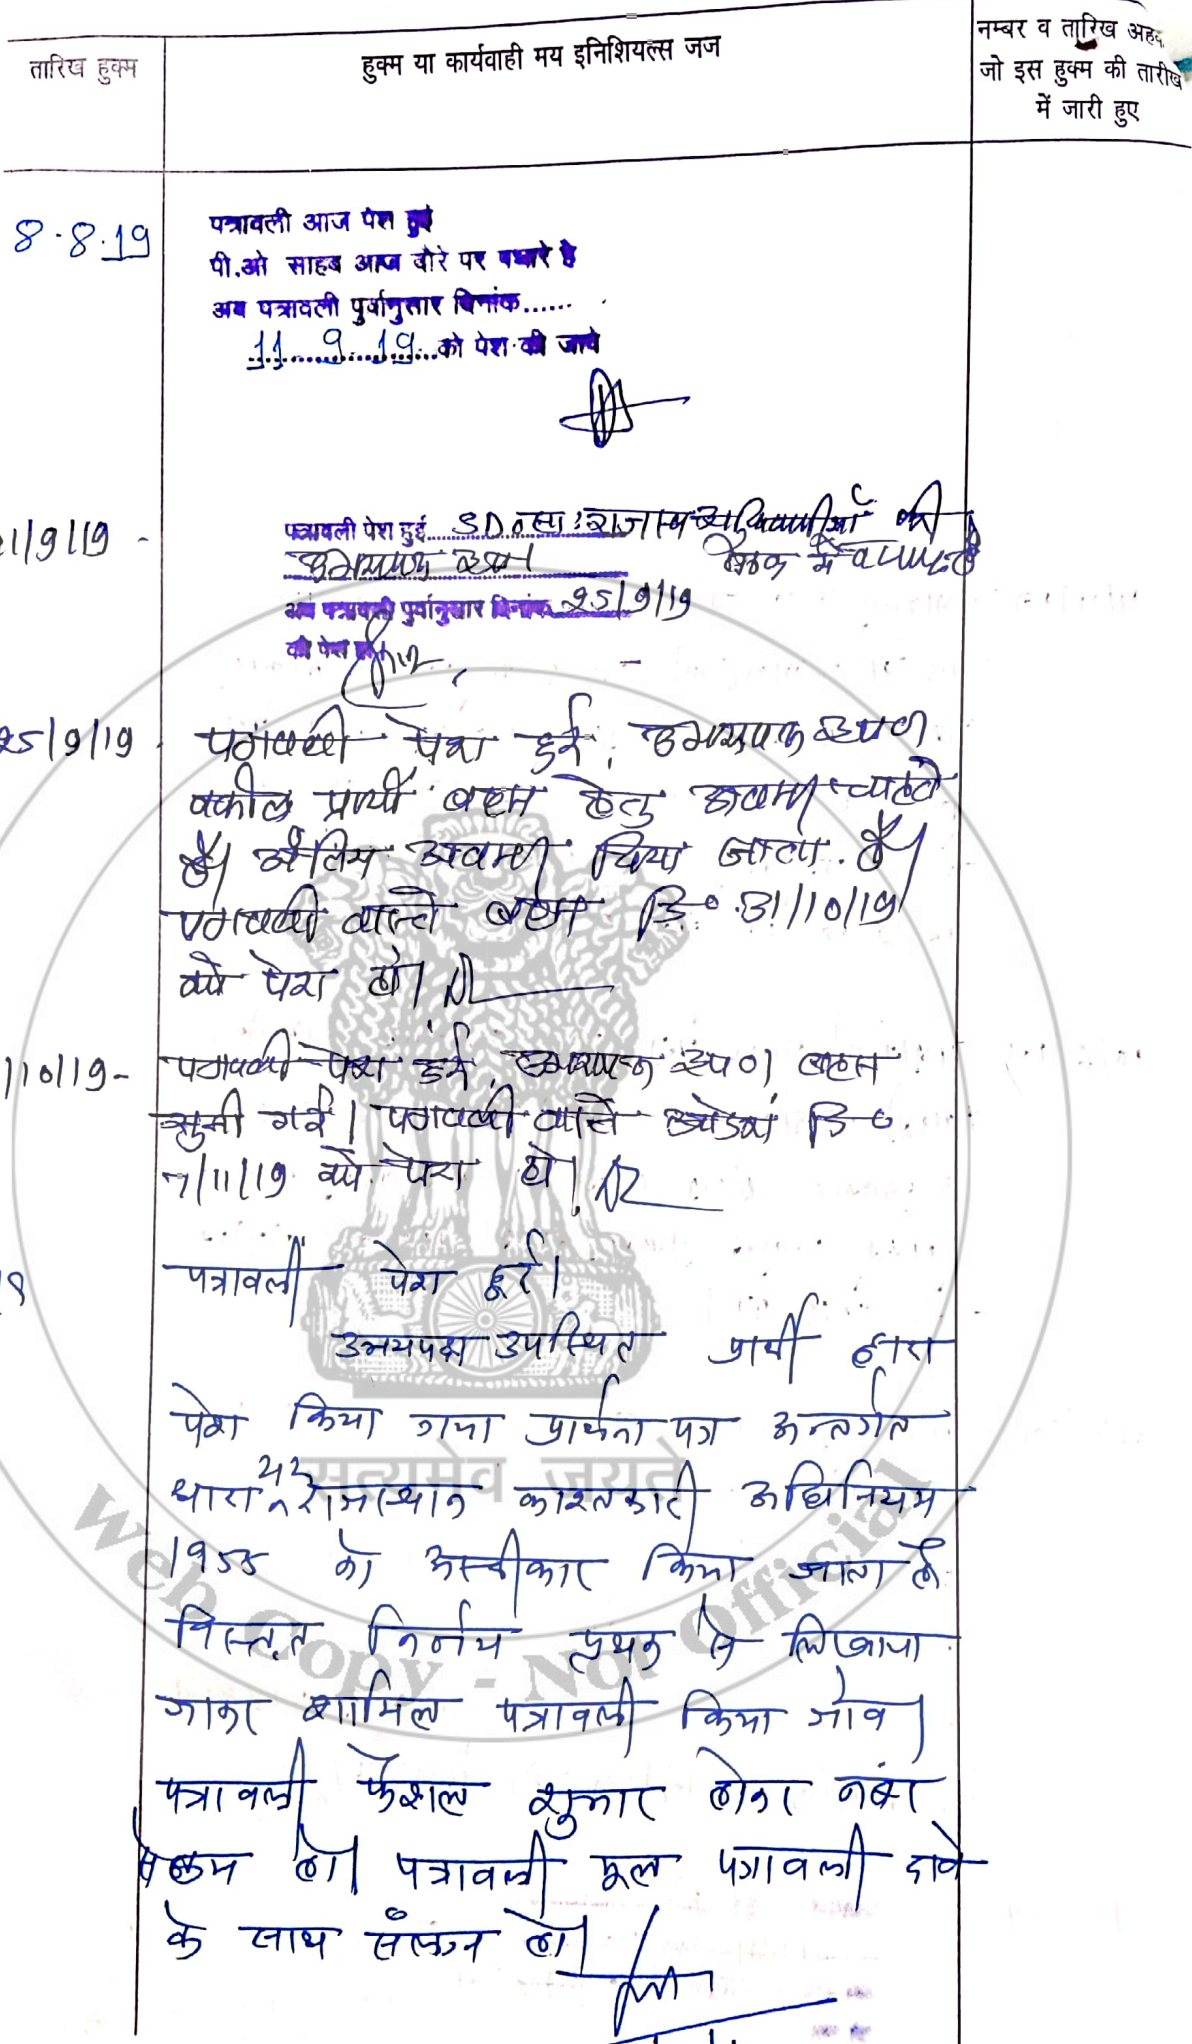 तारिख हुक्म
हुक्म या कार्यवाही मय इनिशियल्स जज
नम्बर व तारिख अहद
जो इस हुक्म की तारीख
में जारी हुए
8.8.19
पत्रावली आज पेश हुई
पी.ओ साहब आज दौरे पर पधारे है
अब पत्रावली पुर्वानुसार दिनांक......
11.9.19 को पेश की जावे
1/9/19 -
पत्रावली पेश हुई SDO सा: राजस्व की
उभयपक्ष उप० बैठक में
अब पत्रावली पुर्वानुसार दिनांक 25/9/19
को पेश हो
25/9/19
पत्रावली पेश हुई, उभयपक्ष उप०।
वकील प्रार्थी बहस हेतु अवसर चाहते
है। अंतिम अवसर दिया जाता है।
पत्रावली वास्ते बहस दि० 31/10/19
को पेश हो।
/10/19-
पत्रावली पेश हुई, उभयपक्ष उप०। बहस
सुनी गई। पत्रावली वास्ते आदेश दि०
7/11/19 को पेश हो।
पत्रावली पेश हुई।
उभयपक्ष उपस्थित प्रार्थी द्वारा
पेश किया गया प्रार्थना पत्र अन्तर्गत
धारा 212 राजस्थान काश्तकारी अधिनियम
1955 को अस्वीकार किया जाता है
विस्तृत निर्णय पृथक से लिखाया
जाकर शामिल पत्रावली किया जावे।
पत्रावली फैशल शुमार होकर नम्बर
से कम हो। पत्रावली मूल पत्रावली दावे
के साथ संलग्न हो।
सत्यमेव जयते
Web Copy - Not Official